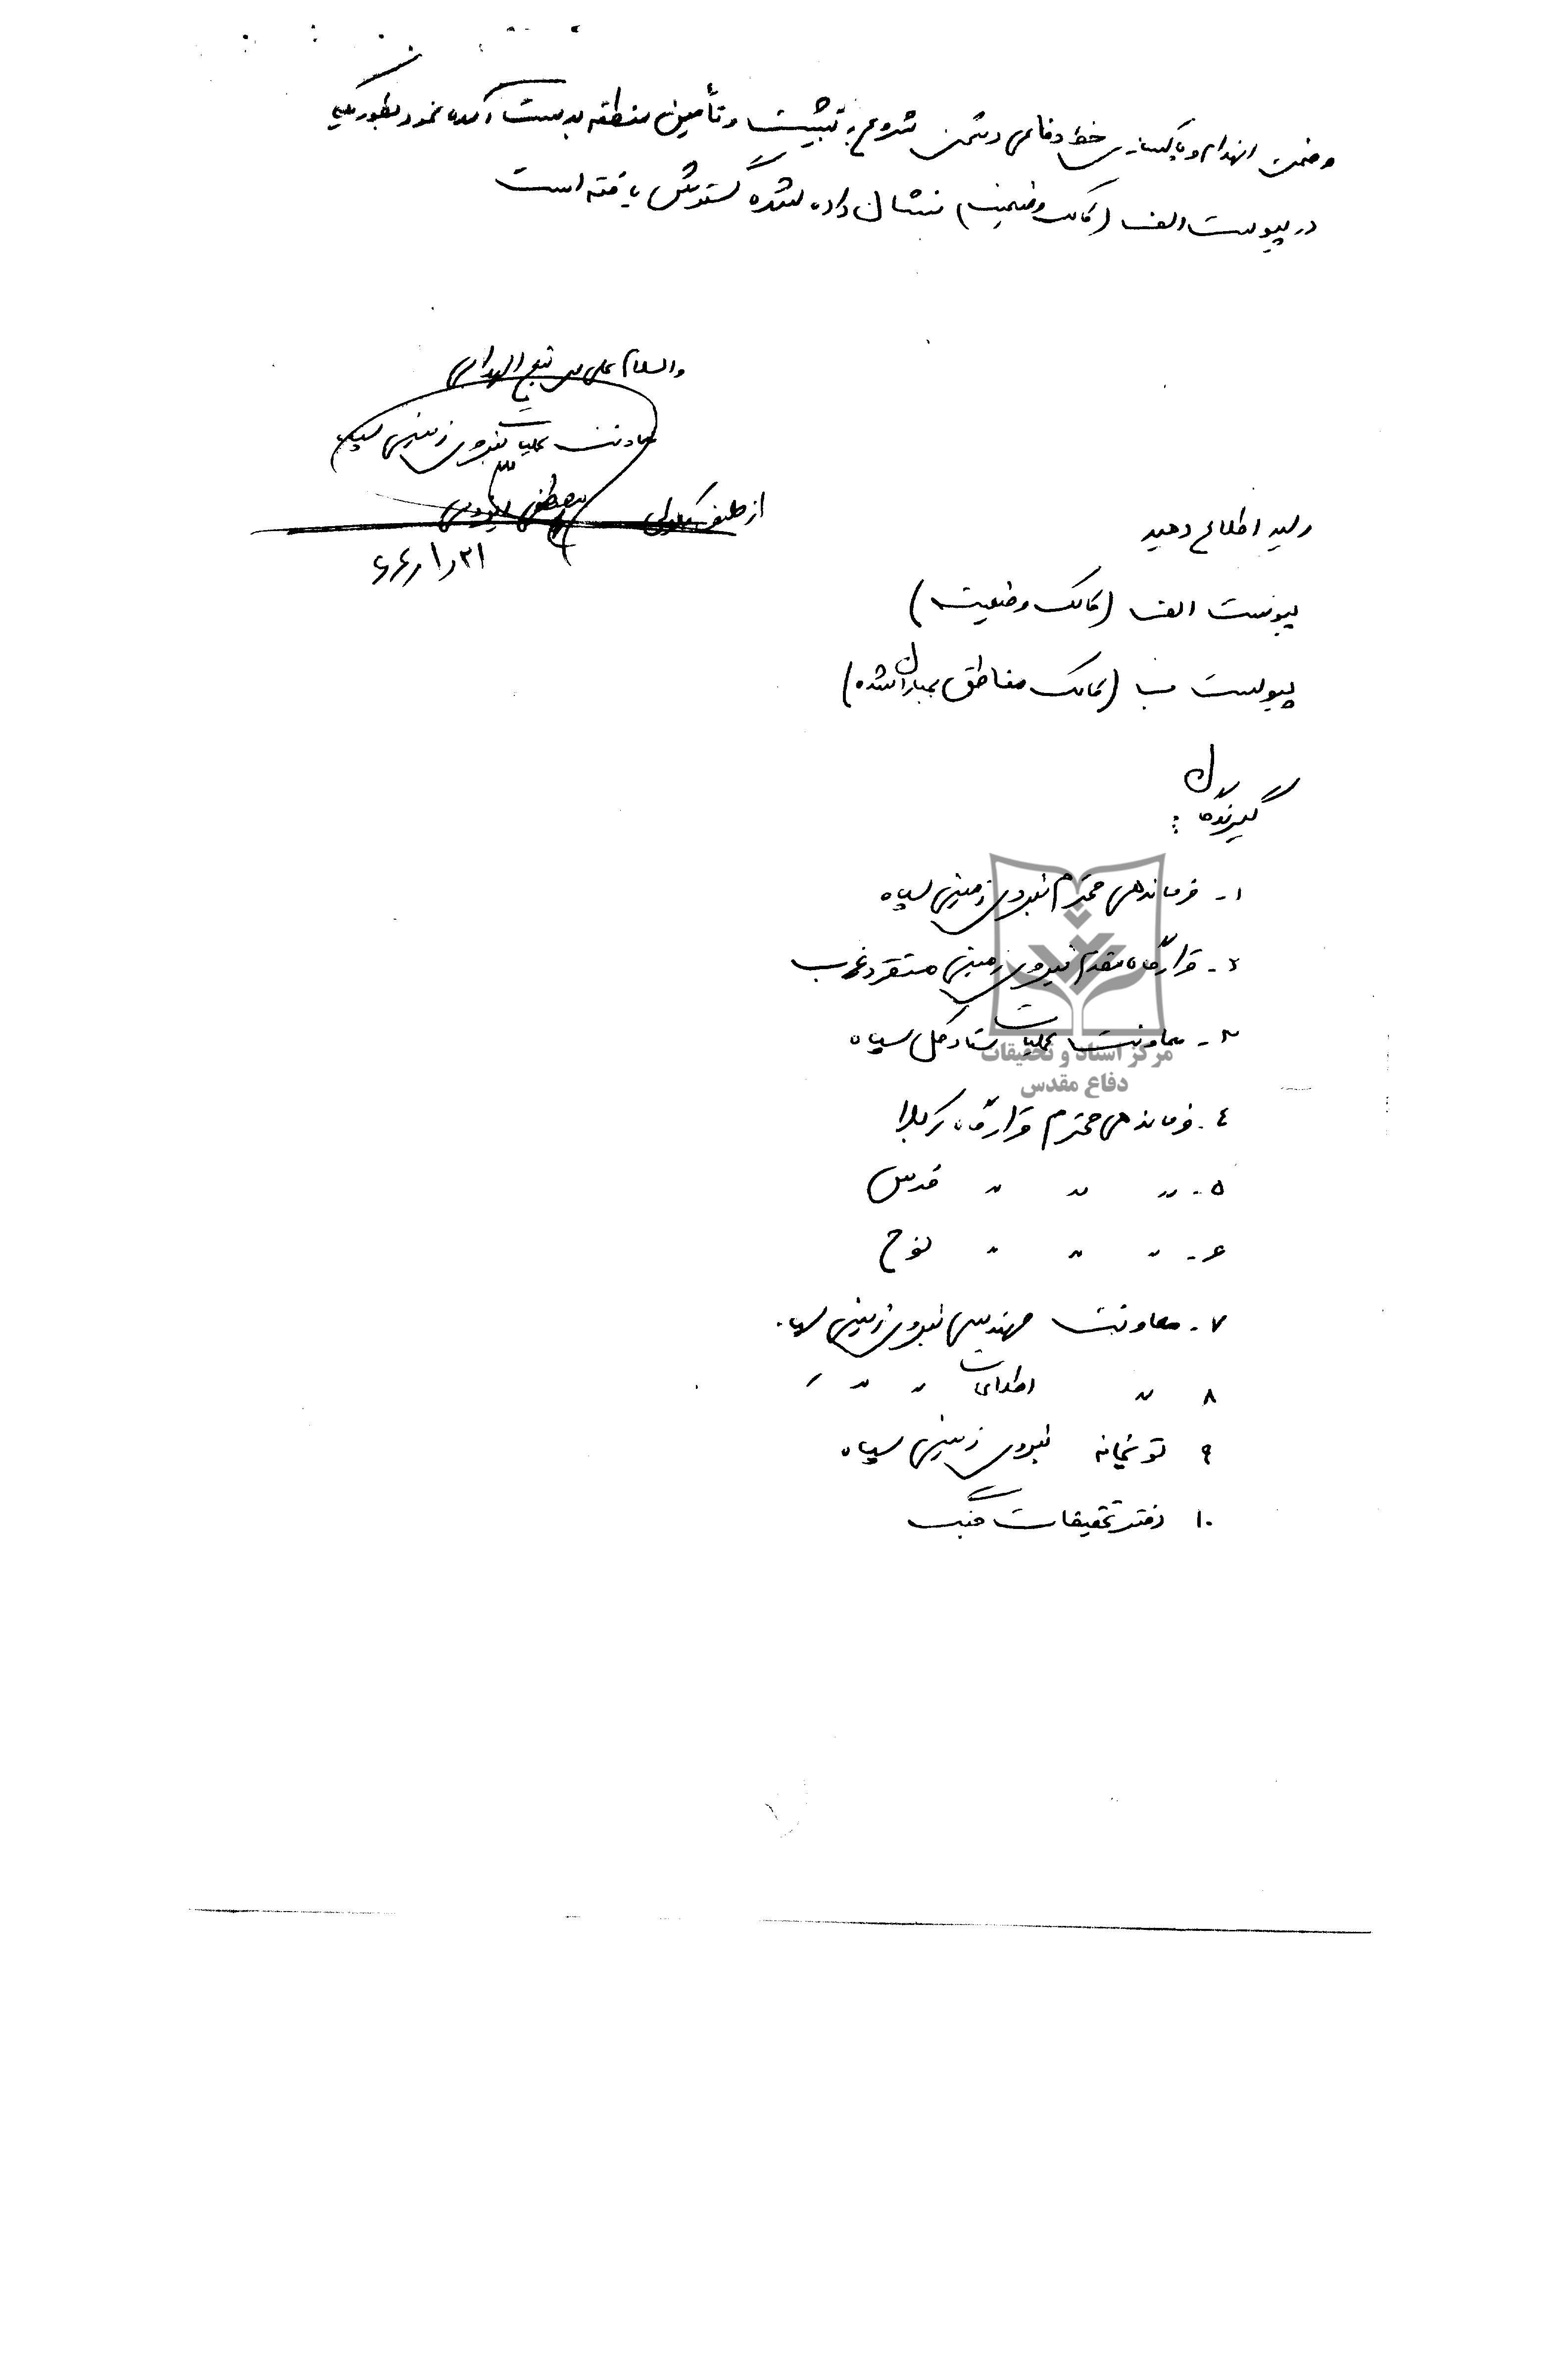 و ضمن انهدام و پاکسازی خط دفاعی دشمن شروع به تثبیت و تأمین منطقه بدست آمده نمود بطوریکه
در پیوست الف (کالک وضعیت) نشان داده شده گسترش یافته است
والسلام علی من تبع الهدی
معاونت عملیات نیروی زمینی سپاه
از طرف مصطفی
۶۶/۱/۲۱
رسید اطلاع دهید
پیوست الف (کالک وضعیت)
پیوست ب (کالک مناطق بمباران شده)
گیرندگان :
۱- فرماندهی محترم نیروی زمینی سپاه
۲- قرارگاه مقدم نیروی زمینی مستقر در غرب
۳- معاونت عملیات ستاد کل سپاه
مرکز اسناد و تحقیقات
دفاع مقدس
٤- فرماندهی محترم قرارگاه کربلا
۵- " " " قدس
۶- " " " نوح
۷- معاونت مهندسی نیروی زمینی سپاه
۸ " اطلاعات " " "
۹ توپخانه نیروی زمینی سپاه
۱۰ دفتر تحقیقات جنگ